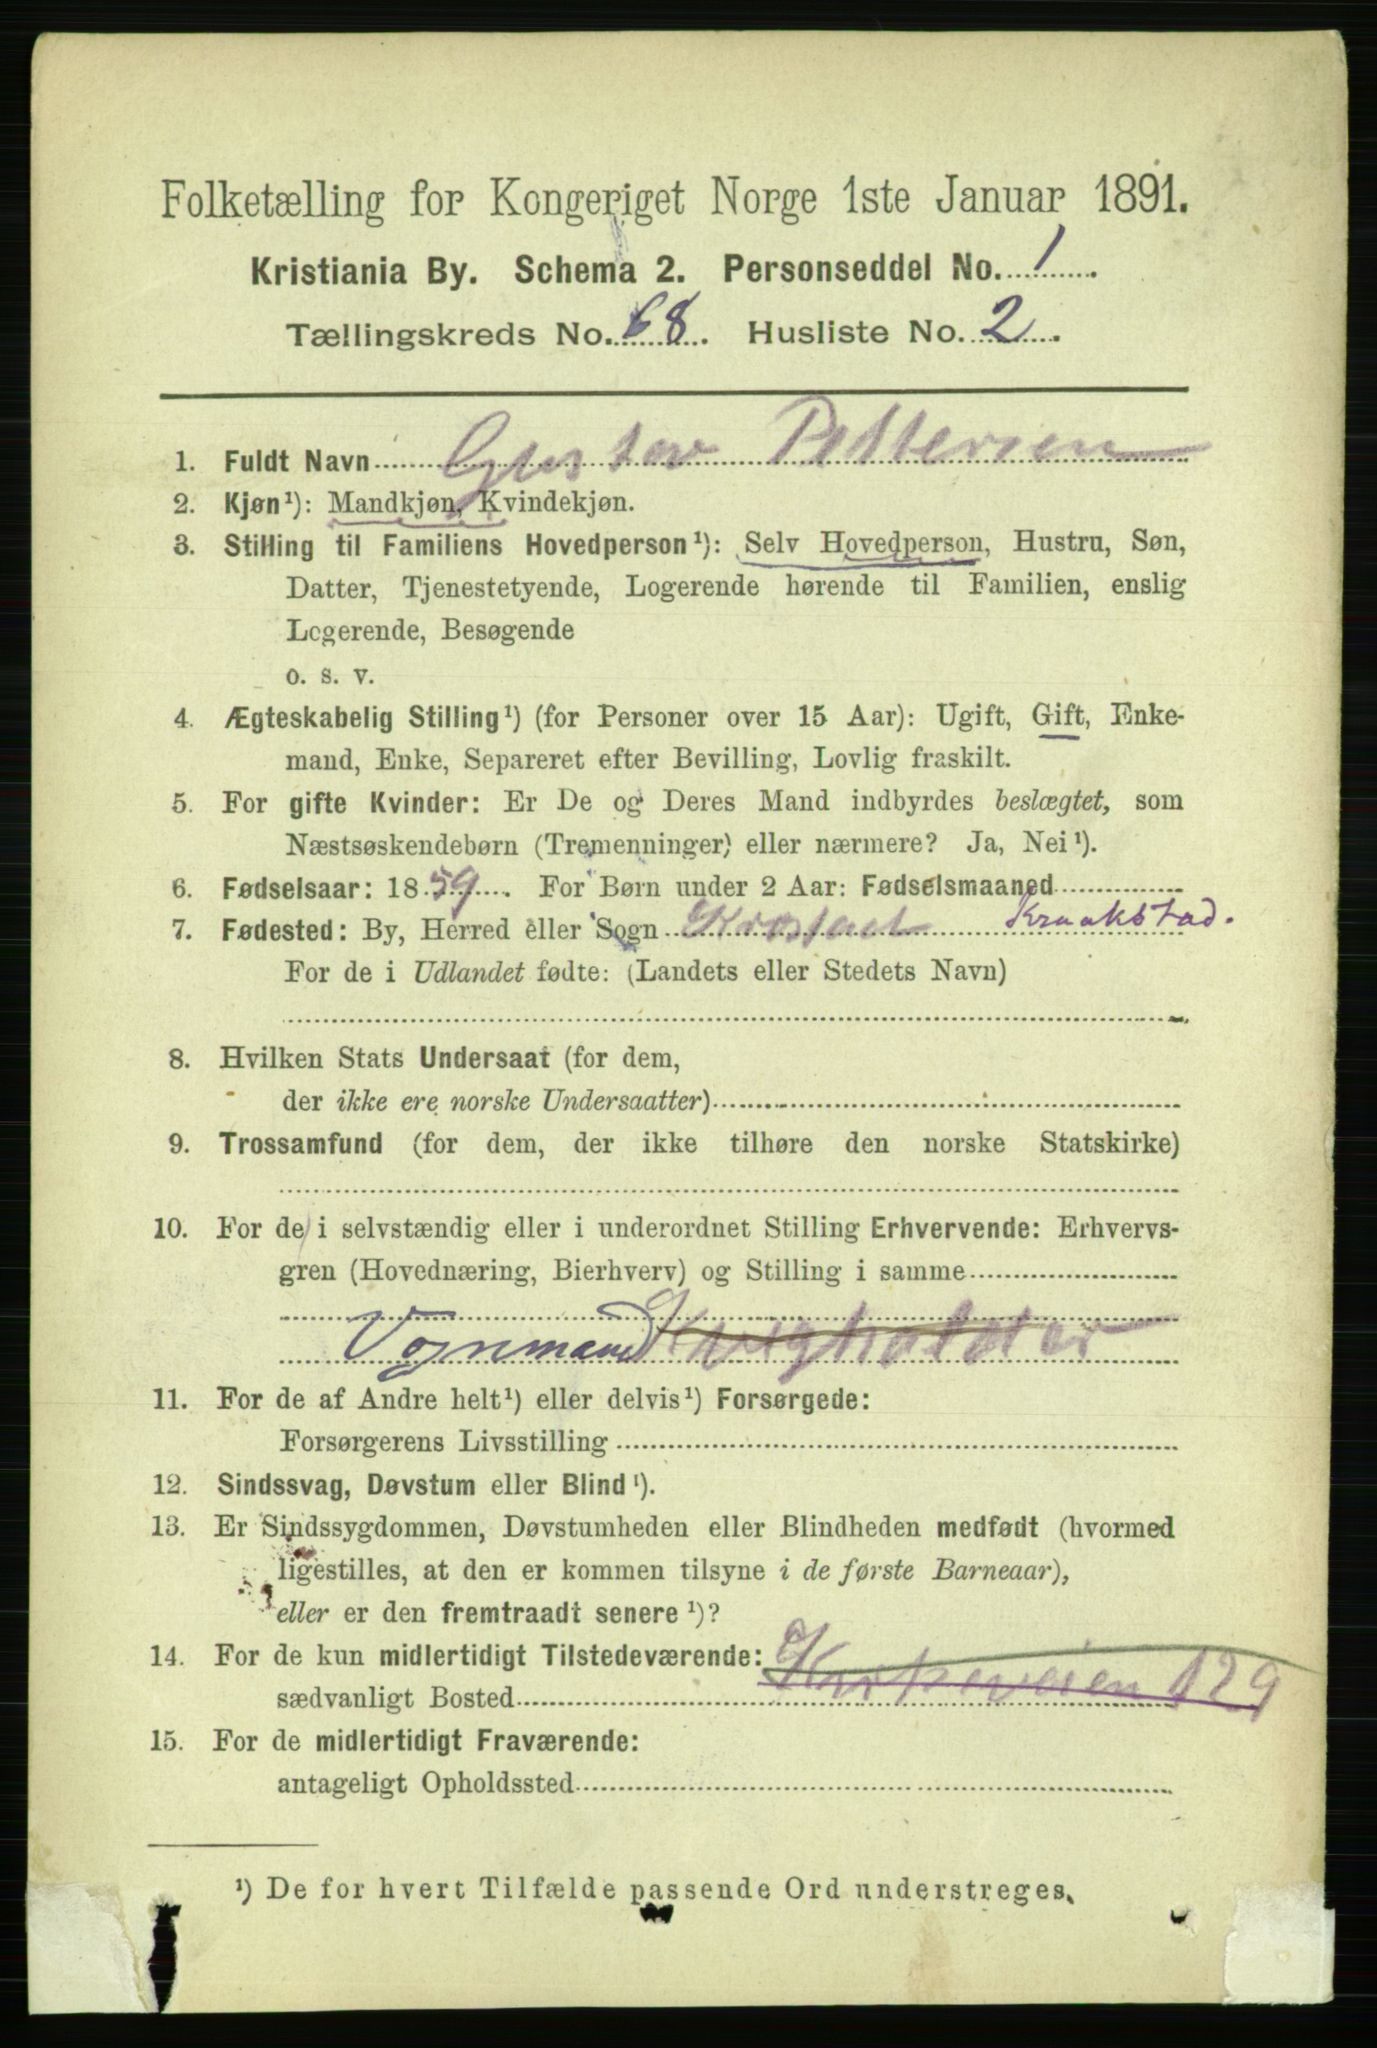 Folketælling for Kongeriget Norge 1ste Januar 1891.
Kristiania By. Schema 2. Personseddel No. 1.
Tællingskreds No. 68. Husliste No. 2.
1. Fuldt Navn Gustav Pettersen
2. Kjøn¹): Mandkjøn, Kvindekjøn.
3. Stilling til Familiens Hovedperson¹): Selv Hovedperson, Hustru, Søn,
Datter, Tjenestetyende, Logerende hørende til Familien, enslig
Logerende, Besøgende
o. s. v.
4. Ægteskabelig Stilling¹) (for Personer over 15 Aar): Ugift, Gift, Enke-
mand, Enke, Separeret efter Bevilling, Lovlig fraskilt.
5. For gifte Kvinder: Er De og Deres Mand indbyrdes beslægtet, som
Næstsøskendebørn (Tremenninger) eller nærmere? Ja, Nei¹).
6. Fødselsaar: 1859. For Børn under 2 Aar: Fødselsmaaned
7. Fødested: By, Herred eller Sogn Krostad Kraakstad.
For de i Udlandet fødte: (Landets eller Stedets Navn)
8. Hvilken Stats Undersaat (for dem,
der ikke ere norske Undersaatter)
9. Trossamfund (for dem, der ikke tilhøre den norske Statskirke)
10. For de i selvstændig eller i underordnet Stilling Erhvervende: Erhvervs-
gren (Hovednæring, Bierhverv) og Stilling i samme
Vognmand
11. For de af Andre helt¹) eller delvis¹) Forsørgede:
Forsørgerens Livsstilling
12. Sindssvag, Døvstum eller Blind¹).
13. Er Sindssygdommen, Døvstumheden eller Blindheden medfødt (hvormed
ligestilles, at den er kommen tilsyne i de første Barneaar),
eller er den fremtraadt senere¹)?
14. For de kun midlertidigt Tilstedeværende:
sædvanligt Bosted Kirkeveien 129
15. For de midlertidigt Fraværende:
antageligt Opholdssted
¹) De for hvert Tilfælde passende Ord understreges.